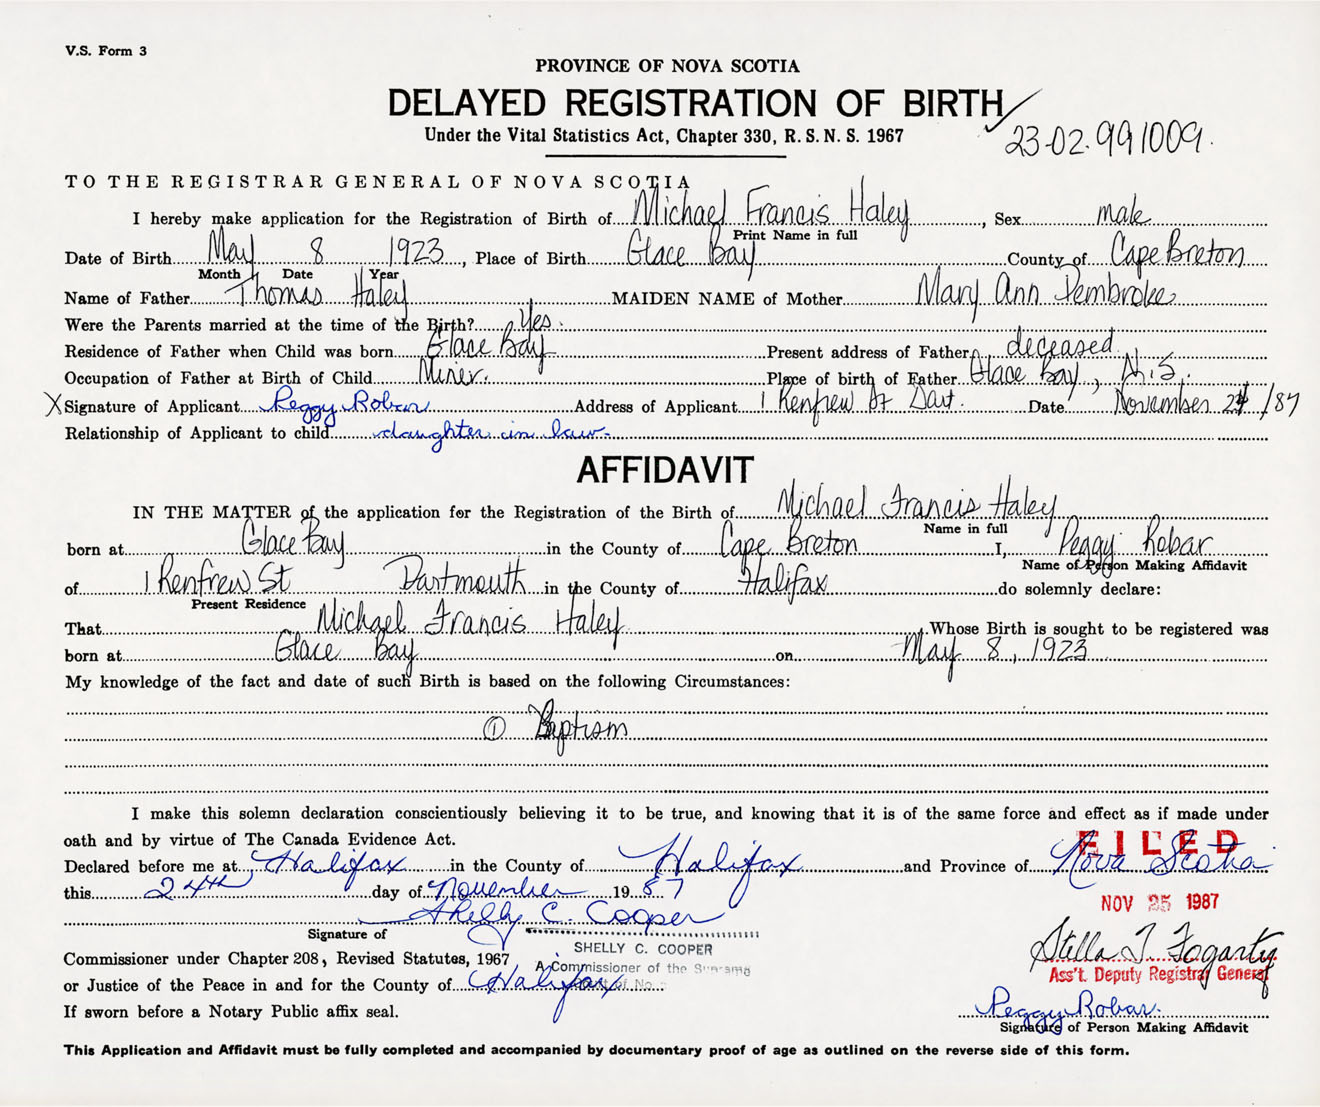 V.S. Form 3
PROVINCE OF NOVA SCOTIA
DELAYED REGISTRATION OF BIRTH
Under the Vital Statistics Act, Chapter 330, R.S.N.S. 1967
23-02.991009.
TO THE REGISTRAR GENERAL OF NOVA SCOTIA
I hereby make application for the Registration of Birth of Michael Francis Haley, Sex male
Print Name in full
Date of Birth May 8 1923, Place of Birth Glace Bay County of Cape Breton
Month Date Year
Name of Father Thomas Haley MAIDEN NAME of Mother Mary Ann Pembroke
Were the Parents married at the time of the Birth? Yes.
Residence of Father when Child was born Glace Bay Present address of Father deceased
Occupation of Father at Birth of Child Miner. Place of birth of Father Glace Bay, N.S.
X Signature of Applicant Peggy Robar Address of Applicant 1 Renfrew St Dart. Date November 24/87
Relationship of Applicant to child daughter in law.
AFFIDAVIT
IN THE MATTER of the application for the Registration of the Birth of Michael Francis Haley
Name in full
born at Glace Bay in the County of Cape Breton I, Peggy Robar
Name of Person Making Affidavit
of 1 Renfrew St Dartmouth in the County of Halifax do solemnly declare:
Present Residence
That Michael Francis Haley Whose Birth is sought to be registered was
born at Glace Bay on May 8, 1923
My knowledge of the fact and date of such Birth is based on the following Circumstances:
① Baptism
I make this solemn declaration conscientiously believing it to be true, and knowing that it is of the same force and effect as if made under
oath and by virtue of The Canada Evidence Act.
FILED
Declared before me at Halifax in the County of Halifax and Province of Nova Scotia
this 24th day of November 1987
NOV 25 1987
Shelly C. Cooper
Signature of
SHELLY C. COOPER
Stella T Fogarty
Commissioner under Chapter 208, Revised Statutes, 1967
A Commissioner of the Supreme
Ass't. Deputy Registrar General
or Justice of the Peace in and for the County of Halifax
Peggy Robar.
If sworn before a Notary Public affix seal.
Signature of Person Making Affidavit
This Application and Affidavit must be fully completed and accompanied by documentary proof of age as outlined on the reverse side of this form.